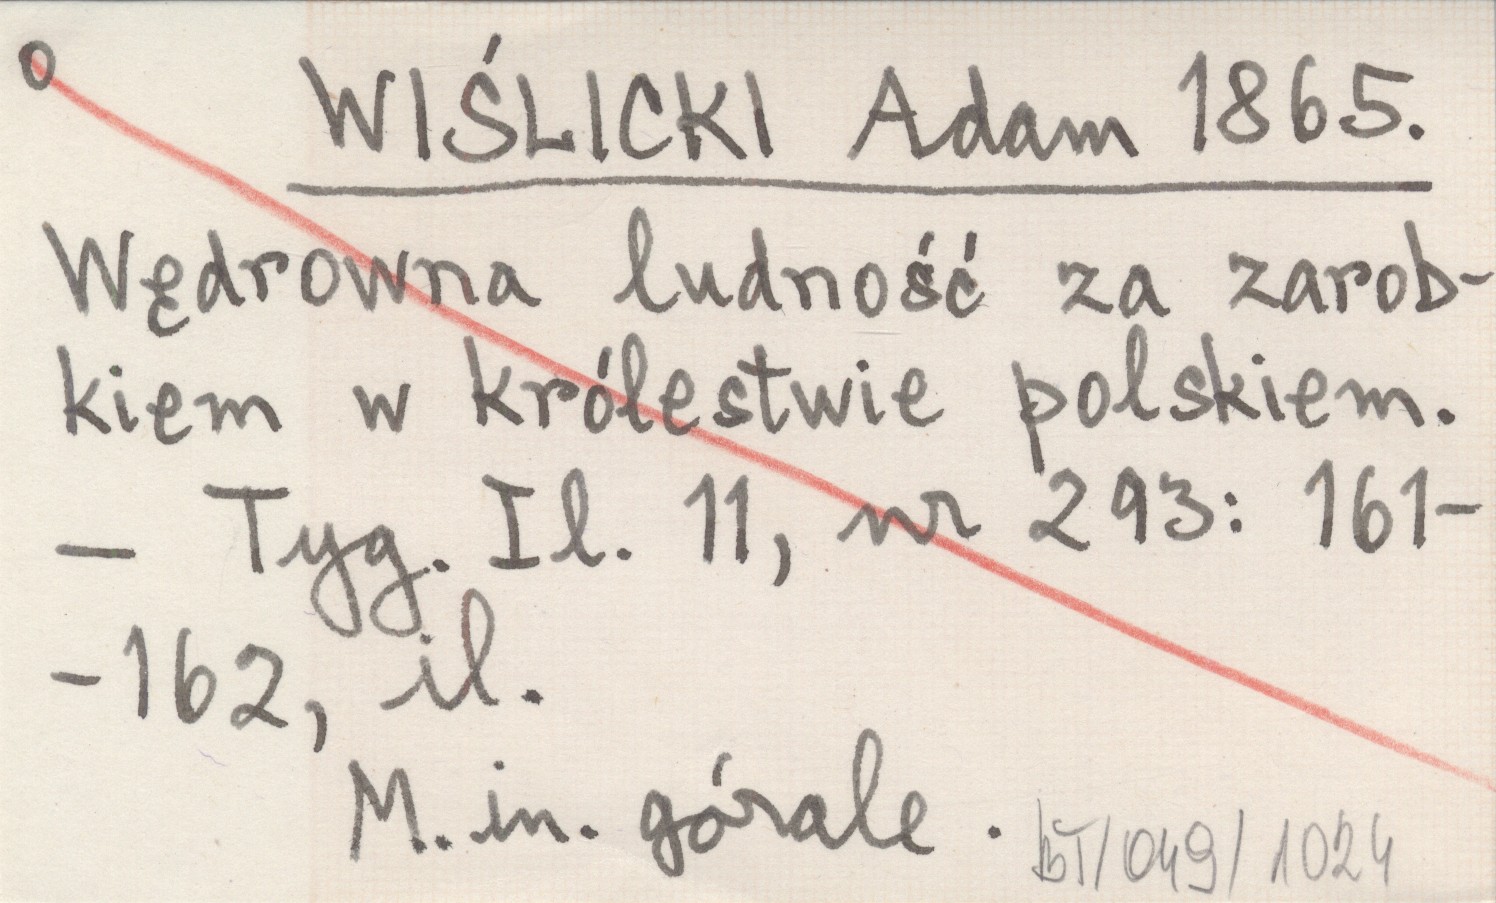 o WIŚLICKI Adam 1865.
Wędrowna ludność za zarob-
kiem w królestwie polskiem.
— Tyg. Il. 11, nr 293: 161-
-162, il.
M. in. górale.
BT/049/1024